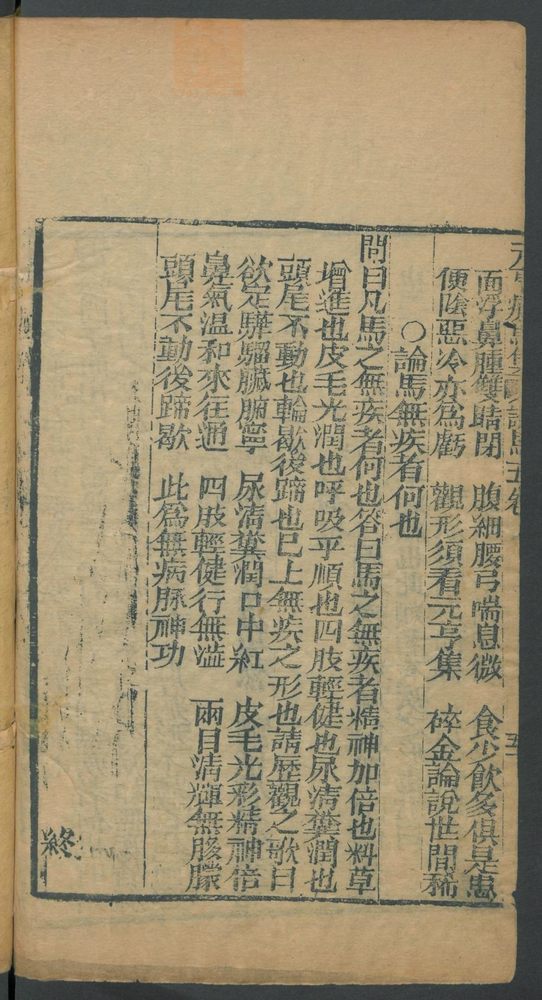 面浮鼻腫雙睛閉　腹細腰弓喘息微　食少飲多俱是患
便陰惡冷亦為虧　觀形須看元亨集　碎金論說世間稀
○論馬無疾者何也
問曰凡馬之無疾者何也答曰馬之無疾者精神加倍也料草
增進也皮毛光潤也呼吸平順也四肢輕健也尿清糞潤也
頭尾不動也輪歇後蹄也已上無疾之形也請歷觀之歌曰
欲定驊騮臟腑寧　尿清糞潤口中紅　皮毛光彩精神倍
鼻氣溫和來往通　四肢輕健行無溢　兩目清輝無朦朦
頭尾不動後蹄歇　此為無病脉神功
終